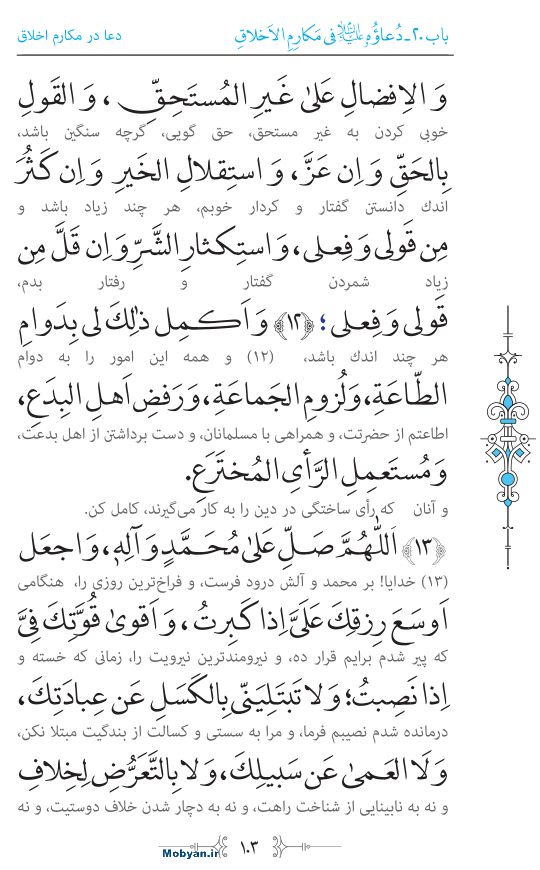 باب ۲۰ـ دُعاؤُهُ عليه‌السلام فی مَکارِمِ الاَخلاقِ
دعا در مکارم اخلاق
وَ الاِفضالِ عَلیٰ غَیرِ المُستَحِقِّ ، وَ القَولِ
خوبی کردن به غیر مستحق، حق گویی، گرچه سنگین باشد،
بِالحَقِّ وَ اِن عَزَّ، وَ استِقلالِ الخَیرِ وَ اِن کَثُرَ
اندك دانستن گفتار و کردار خوبم، هر چند زیاد باشد و
مِن قَولی وَ فِعلی، وَ استِکثارِ الشَّرِّ وَ اِن قَلَّ مِن
زیاد شمردن گفتار و رفتار بدم،
قَولی وَ فِعلی ؛ ﴿۱۲﴾ وَ اَکمِل ذٰلِكَ لی بِدَوامِ
هر چند اندك باشد، (۱۲) و همه این امور را به دوام
الطّاعَةِ، وَ لُزومِ الجَماعَةِ، وَ رَفضِ اَهلِ البِدَعِ،
اطاعتم از حضرتت، و همراهی با مسلمانان، و دست برداشتن از اهل بدعت،
وَ مُستَعمِلِ الرَّأیِ المُختَرَعِ.
و آنان که رأی ساختگی در دین را به کار می‌گیرند، کامل کن.
﴿۱۳﴾ اَللّٰهُمَّ صَلِّ عَلیٰ مُحَمَّدٍ وَ آلِهٖ، وَ اجعَل
(۱۳) خدایا! بر محمد و آلش درود فرست، و فراخ‌ترین روزی را، هنگامی
اَوسَعَ رِزقِكَ عَلَیَّ اِذا کَبِرتُ ، وَ اَقویٰ قُوَّتِكَ فِیَّ
که پیر شدم برایم قرار ده، و نیرومندترین نیرویت را، زمانی که خسته و
اِذا نَصِبتُ؛ وَ لا تَبتَلِیَنّی بِالکَسَلِ عَن عِبادَتِكَ،
درمانده شدم نصیبم فرما، و مرا به سستی و کسالت از بندگیت مبتلا نکن،
وَ لَا العَمیٰ عَن سَبیلِكَ، وَ لا بِالتَّعَرُّضِ لِخِلافِ
و نه به نابینایی از شناخت راهت، و نه به دچار شدن خلاف دوستیت، و نه
۱۰۳
Mobyan.ir